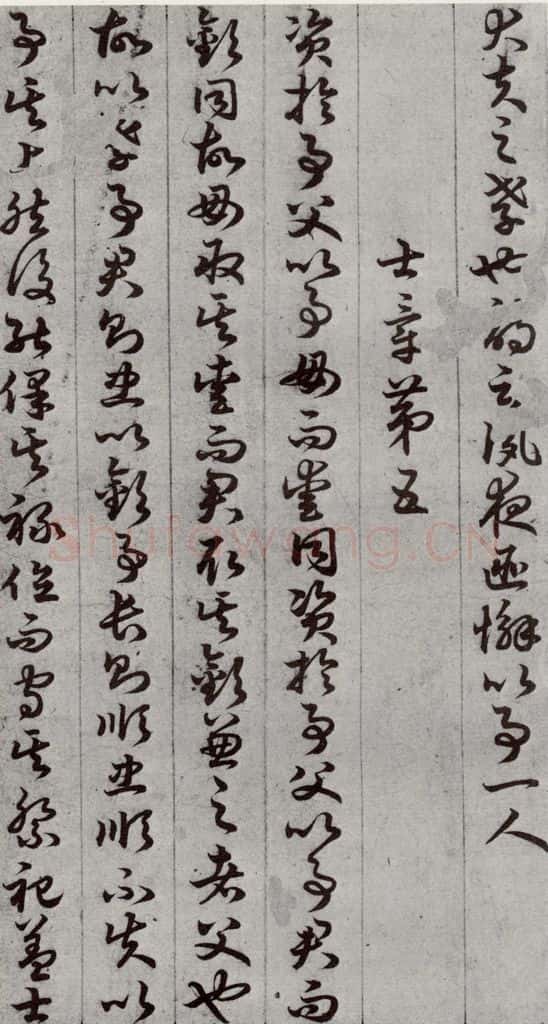 大夫之孝也詩云夙夜匪懈以事一人
士章第五
資於事父以事母而愛同資於事父以事君而
敬同故母取其愛而君取其敬兼之者父也
故以孝事君則忠以敬事長則順忠順不失以
事其上然後能保其祿位而守其祭祀蓋士
Shufawang.CN